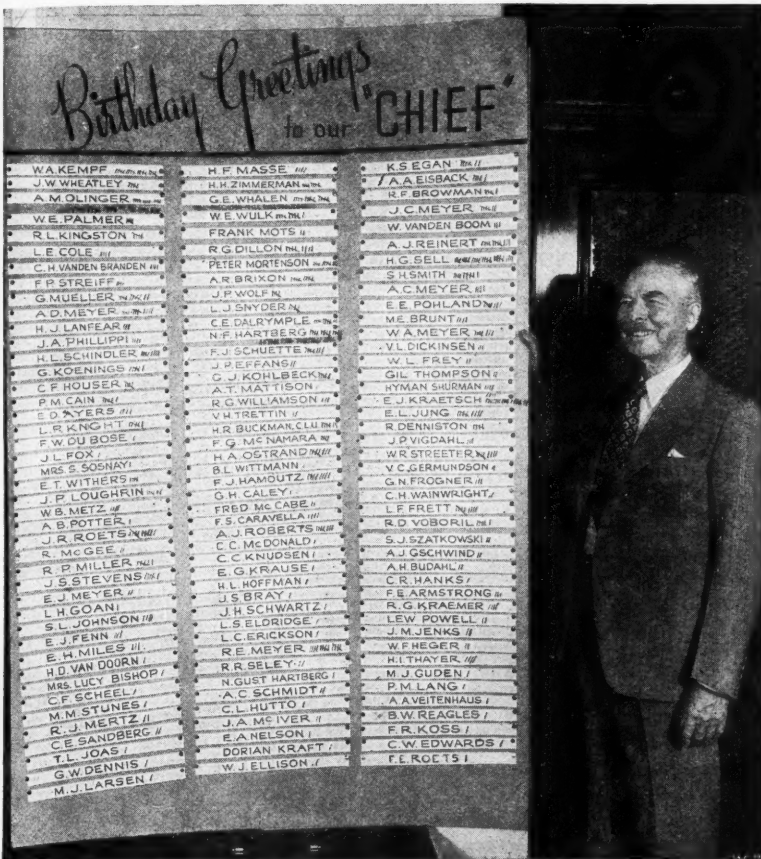 Birthday Greetings
to our "CHIEF"
W.A. KEMPF
J.W. WHEATLEY
A.M. OLINGER
W.E. PALMER
R.L. KINGSTON
L.E. COLE
C.H. VANDEN BRANDEN
F.P. STREIFF
G. MUELLER
A.D. MEYER
H.J. LANFEAR
J.A. PHILLIPPI
H.L. SCHINDLER
G. KOENINGS
C.F. HOUSER
P.M. CAIN
E.D. AYERS
L.R. KNIGHT
F.W. DU BOSE
J.L. FOX
MRS. S. SOSNAY
E.T. WITHERS
J.P. LOUGHRIN
W.B. METZ
A.B. POTTER
J.R. ROETS
R. McGEE
R.P. MILLER
J.S. STEVENS
E.J. MEYER
L.H. GOAN
S.L. JOHNSON
E.J. FENN
E.H. MILES
H.D. VAN DOORN
MRS. LUCY BISHOP
C.F. SCHEEL
M.M. STUNES
R.J. MERTZ
C.E. SANDBERG
T.L. JOAS
G.W. DENNIS
M.J. LARSEN
H.F. MASSE
H.H. ZIMMERMAN
G.E. WHALEN
W.E. WULK
FRANK MOTS
R.G. DILLON
PETER MORTENSON
A.R. BRIXON
J.P. WOLF
L.J. SNYDER
C.E. DALRYMPLE
N.F. HARTBERG
F.J. SCHUETTE
J.P. EFFANS
G.J. KOHLBECK
A.T. MATTISON
R.G. WILLIAMSON
V.H. TRETTIN
H.R. BUCKMAN, C.L.U.
F.G. McNAMARA
H.A. OSTRAND
B.L. WITTMANN
F.J. HAMOUTZ
G.H. CALEY
FRED McCABE
F.S. CARAVELLA
A.J. ROBERTS
C.C. McDONALD
C.C. KNUDSEN
E.G. KRAUSE
H.L. HOFFMAN
J.S. BRAY
J.H. SCHWARTZ
L.S. ELDRIDGE
L.C. ERICKSON
R.E. MEYER
R.R. SELEY
N. GUST HARTBERG
A.C. SCHMIDT
C.L. HUTTO
J.A. McIVER
E.A. NELSON
DORIAN KRAFT
W.J. ELLISON
K.S. EGAN
A.A. EISBACK
R.F. BROWMAN
J.C. MEYER
W. VANDEN BOOM
A.J. REINERT
H.G. SELL
S.H. SMITH
A.C. MEYER
E.E. POHLAND
M.E. BRUNT
W.A. MEYER
V.L. DICKINSEN
W.L. FREY
GIL THOMPSON
HYMAN SHURMAN
E.J. KRAETSCH
E.L. JUNG
R. DENNISTON
J.P. VIGDAHL
W.R. STREETER
V.C. GERMUNDSON
G.N. FROGNER
C.H. WAINWRIGHT
L.F. FRETT
R.D. VOBORIL
S.J. SZATKOWSKI
A.J. GSCHWIND
A.H. BUDAHL
C.R. HANKS
F.E. ARMSTRONG
R.G. KRAEMER
LEW POWELL
J.M. JENKS
W.F. HEGER
H.I. THAYER
M.J. GUDEN
P.M. LANG
A.A. VEITENHAUS
B.W. REAGLES
F.R. KOSS
C.W. EDWARDS
F.E. ROETS